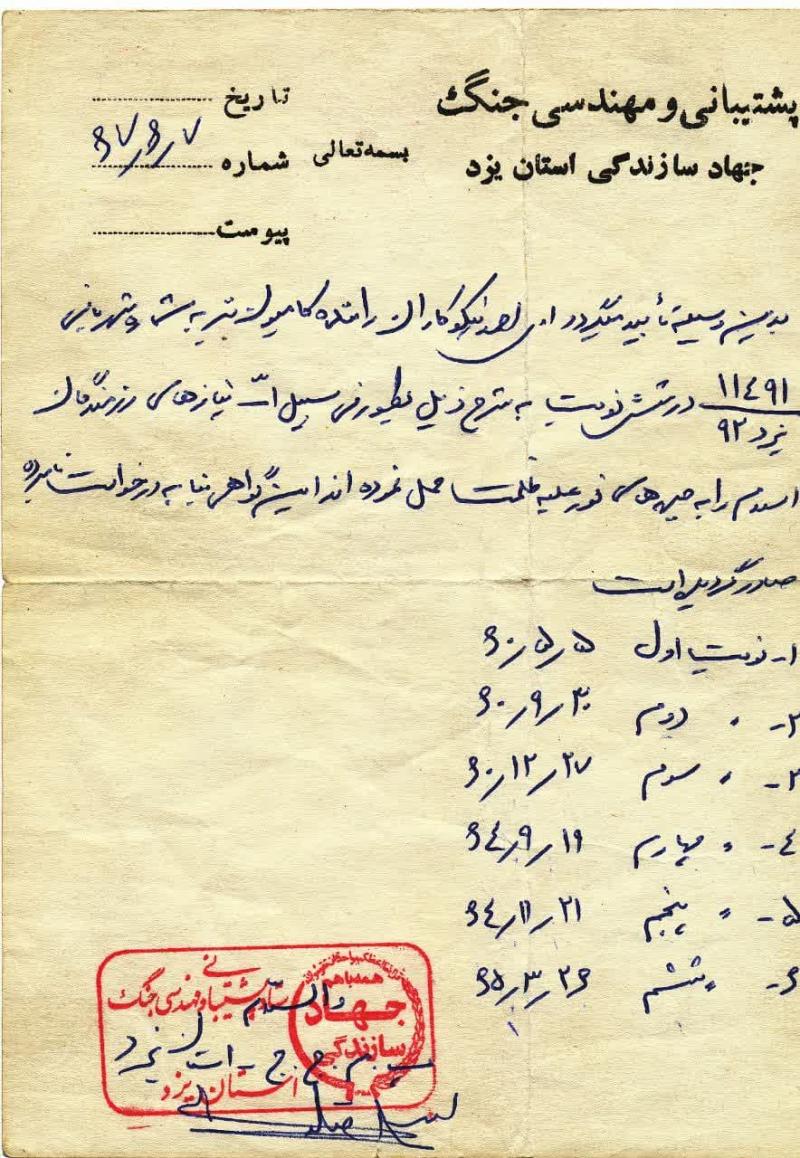 پشتیبانی و مهندسی جنگ
جهاد سازندگی استان یزد
بسمه تعالی
تاریخ
شماره ۶۷/۶/۷
پیوست
بدین وسیله تأیید میگردد نیکوکاران راننده کامیون به شماره شهربانی
۱۱٤۹۱
یزد ۹۲
در شش نوبت به شرح ذیل بطور فی سبیل الله نیازهای رزمندگان
اسلام را به جبهه های نور علیه ظلمت حمل نموده اند این گواهی بنا به درخواست نامبرده
صادر گردیده است
۱- نوبت اول ۶۰/۵/۵
۲- " دوم ۶۰/۹/۳۰
۳- " سوم ۶۰/۱۲/۲۷
٤- " چهارم ۶٤/۹/۱۹
۵- " پنجم ۶٤/۱۱/۲۱
۶- " ششم ۶۵/۳/۲۶
والسلام
ستاد پشتیبانی و مهندسی جنگ
استان یزد
همه با هم
جهاد
سازندگی